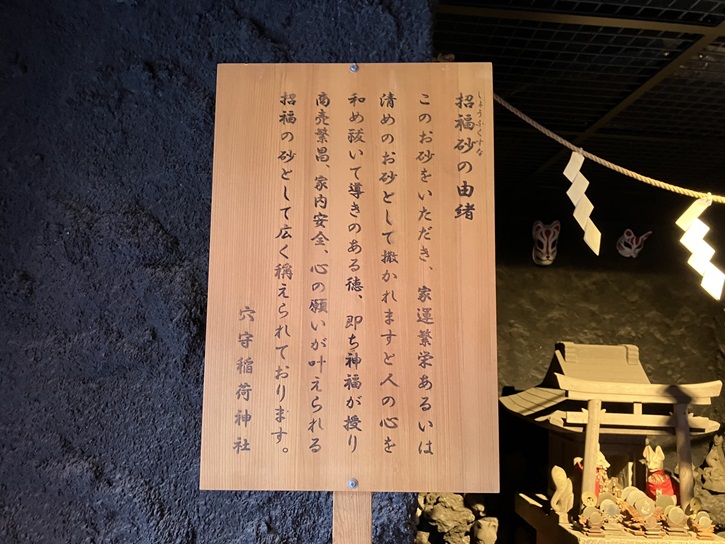 しょうふくすな
招福砂の由緒
このお砂をいただき、家運繁栄あるいは
清めのお砂として撒かれますと人の心を
和め祓いて導きのある徳、即ち神福が授り
商売繁昌、家内安全、心の願いが叶えられる
招福の砂として広く稱えられております。
穴守稲荷神社